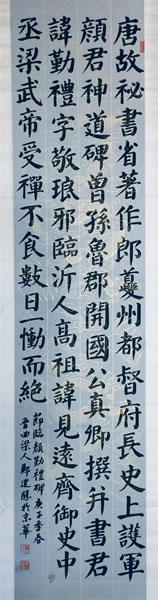 唐故秘書省著作郎夔州都督府長史上護軍
顏君神道碑曾孫魯郡開國公真卿撰并書君
諱勤禮字敬琅邪臨沂人高祖諱見遠齊御史中
丞梁武帝受禪不食數日一慟而絕
節臨顏勤禮碑庚子季春
晉曲梁人鄭建勝於京華